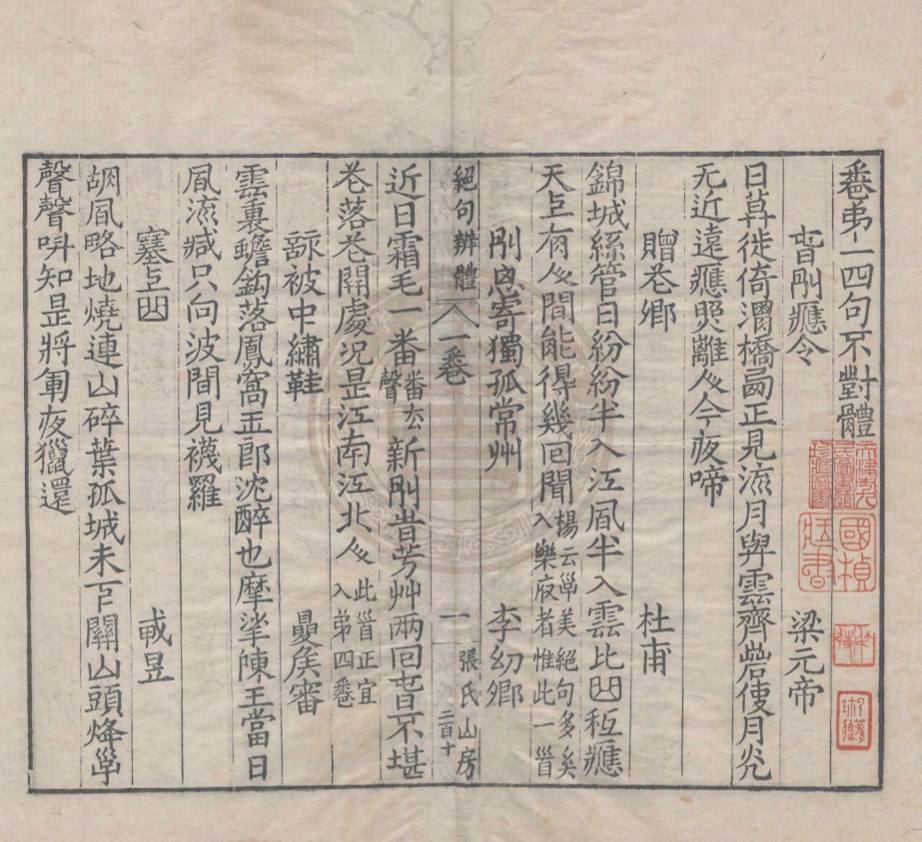 卷弟一四句不對體
春別應令 梁元帝
日暮徙倚渭橋西正見流月與雲齊若使月光
无近遠應照離人今夜啼
贈花卿 杜甫
錦城絲管日紛紛半入江風半入雲此曲秪應
天上有人間能得幾回聞 楊云子美絕句多矣入樂府者惟此一首
別寄獨孤常州 李幼卿
絕句辨體 一卷 一 張氏山房 二百十
近日霜毛一番番去聲新別時芳艸兩回春不堪
花落花開處況是江南江北人 此首正宜入弟四卷
詠被中繡鞋 夏侯審
雲裏蟾鉤落鳳窩玉郎沈醉也摩挲陳王當日
風流減只向波間見襪羅
塞上曲 戎昱
胡風略地燒連山碎葉孤城未下關山頭烽子
聲聲叫知是將軍夜獵還
國楨藏書